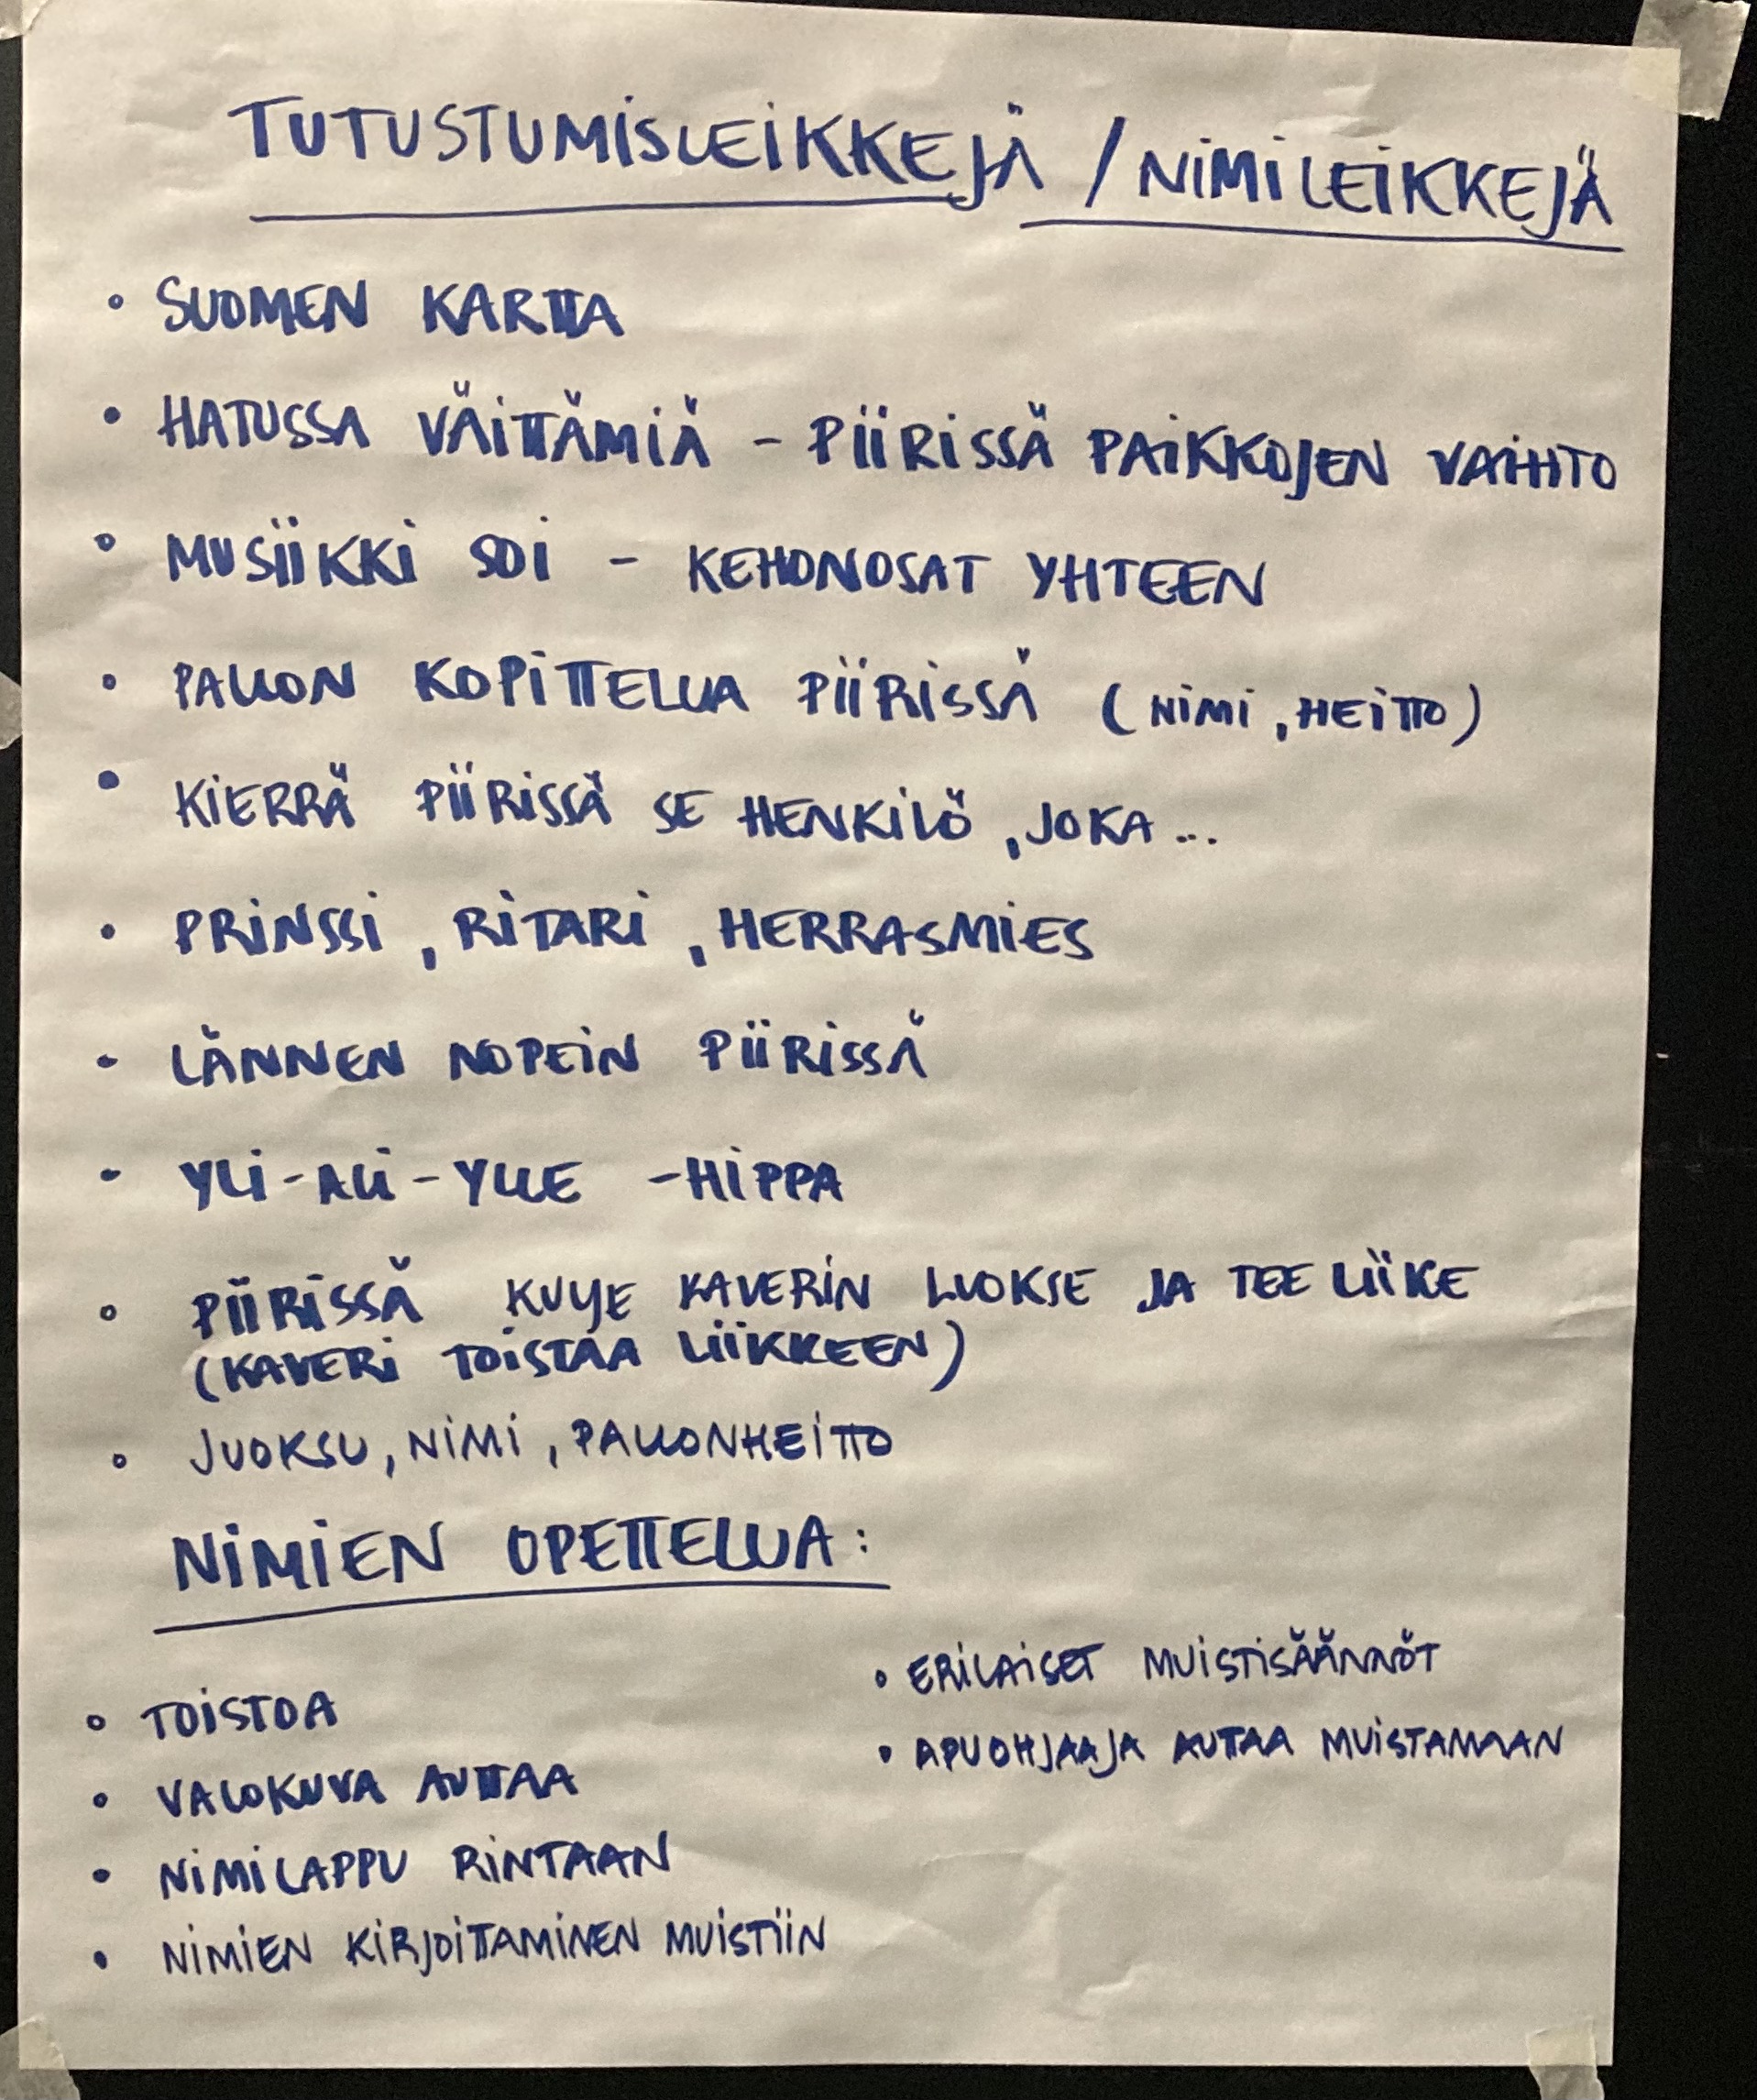 TUTUSTUMISLEIKKEJÄ / NIMILEIKKEJÄ
• SUOMEN KARTTA
• HATUSSA VÄITTÄMIÄ - PIIRISSÄ PAIKKOJEN VAIHTO
• MUSIIKKI SOI - KEHONOSAT YHTEEN
• PALLON KOPITTELUA PIIRISSÄ (NIMI, HEITTO)
• KIERRÄ PIIRISSÄ SE HENKILÖ, JOKA...
• PRINSSI, RITARI, HERRASMIES
• LÄNNEN NOPEIN PIIRISSÄ
• YLI-ALI-YLLE -HIPPA
• PIIRISSÄ KULJE KAVERIN LUOKSE JA TEE LIIKE
(KAVERI TOISTAA LIIKKEEN)
• JUOKSU, NIMI, PALLONHEITTO
NIMIEN OPETTELUA:
• TOISTOA
• VALOKUVA AUTTAA
• NIMILAPPU RINTAAN
• NIMIEN KIRJOITTAMINEN MUISTIIN
• ERILAISET MUISTISÄÄNNÖT
• APUOHJAAJA AUTAA MUISTAMAAN